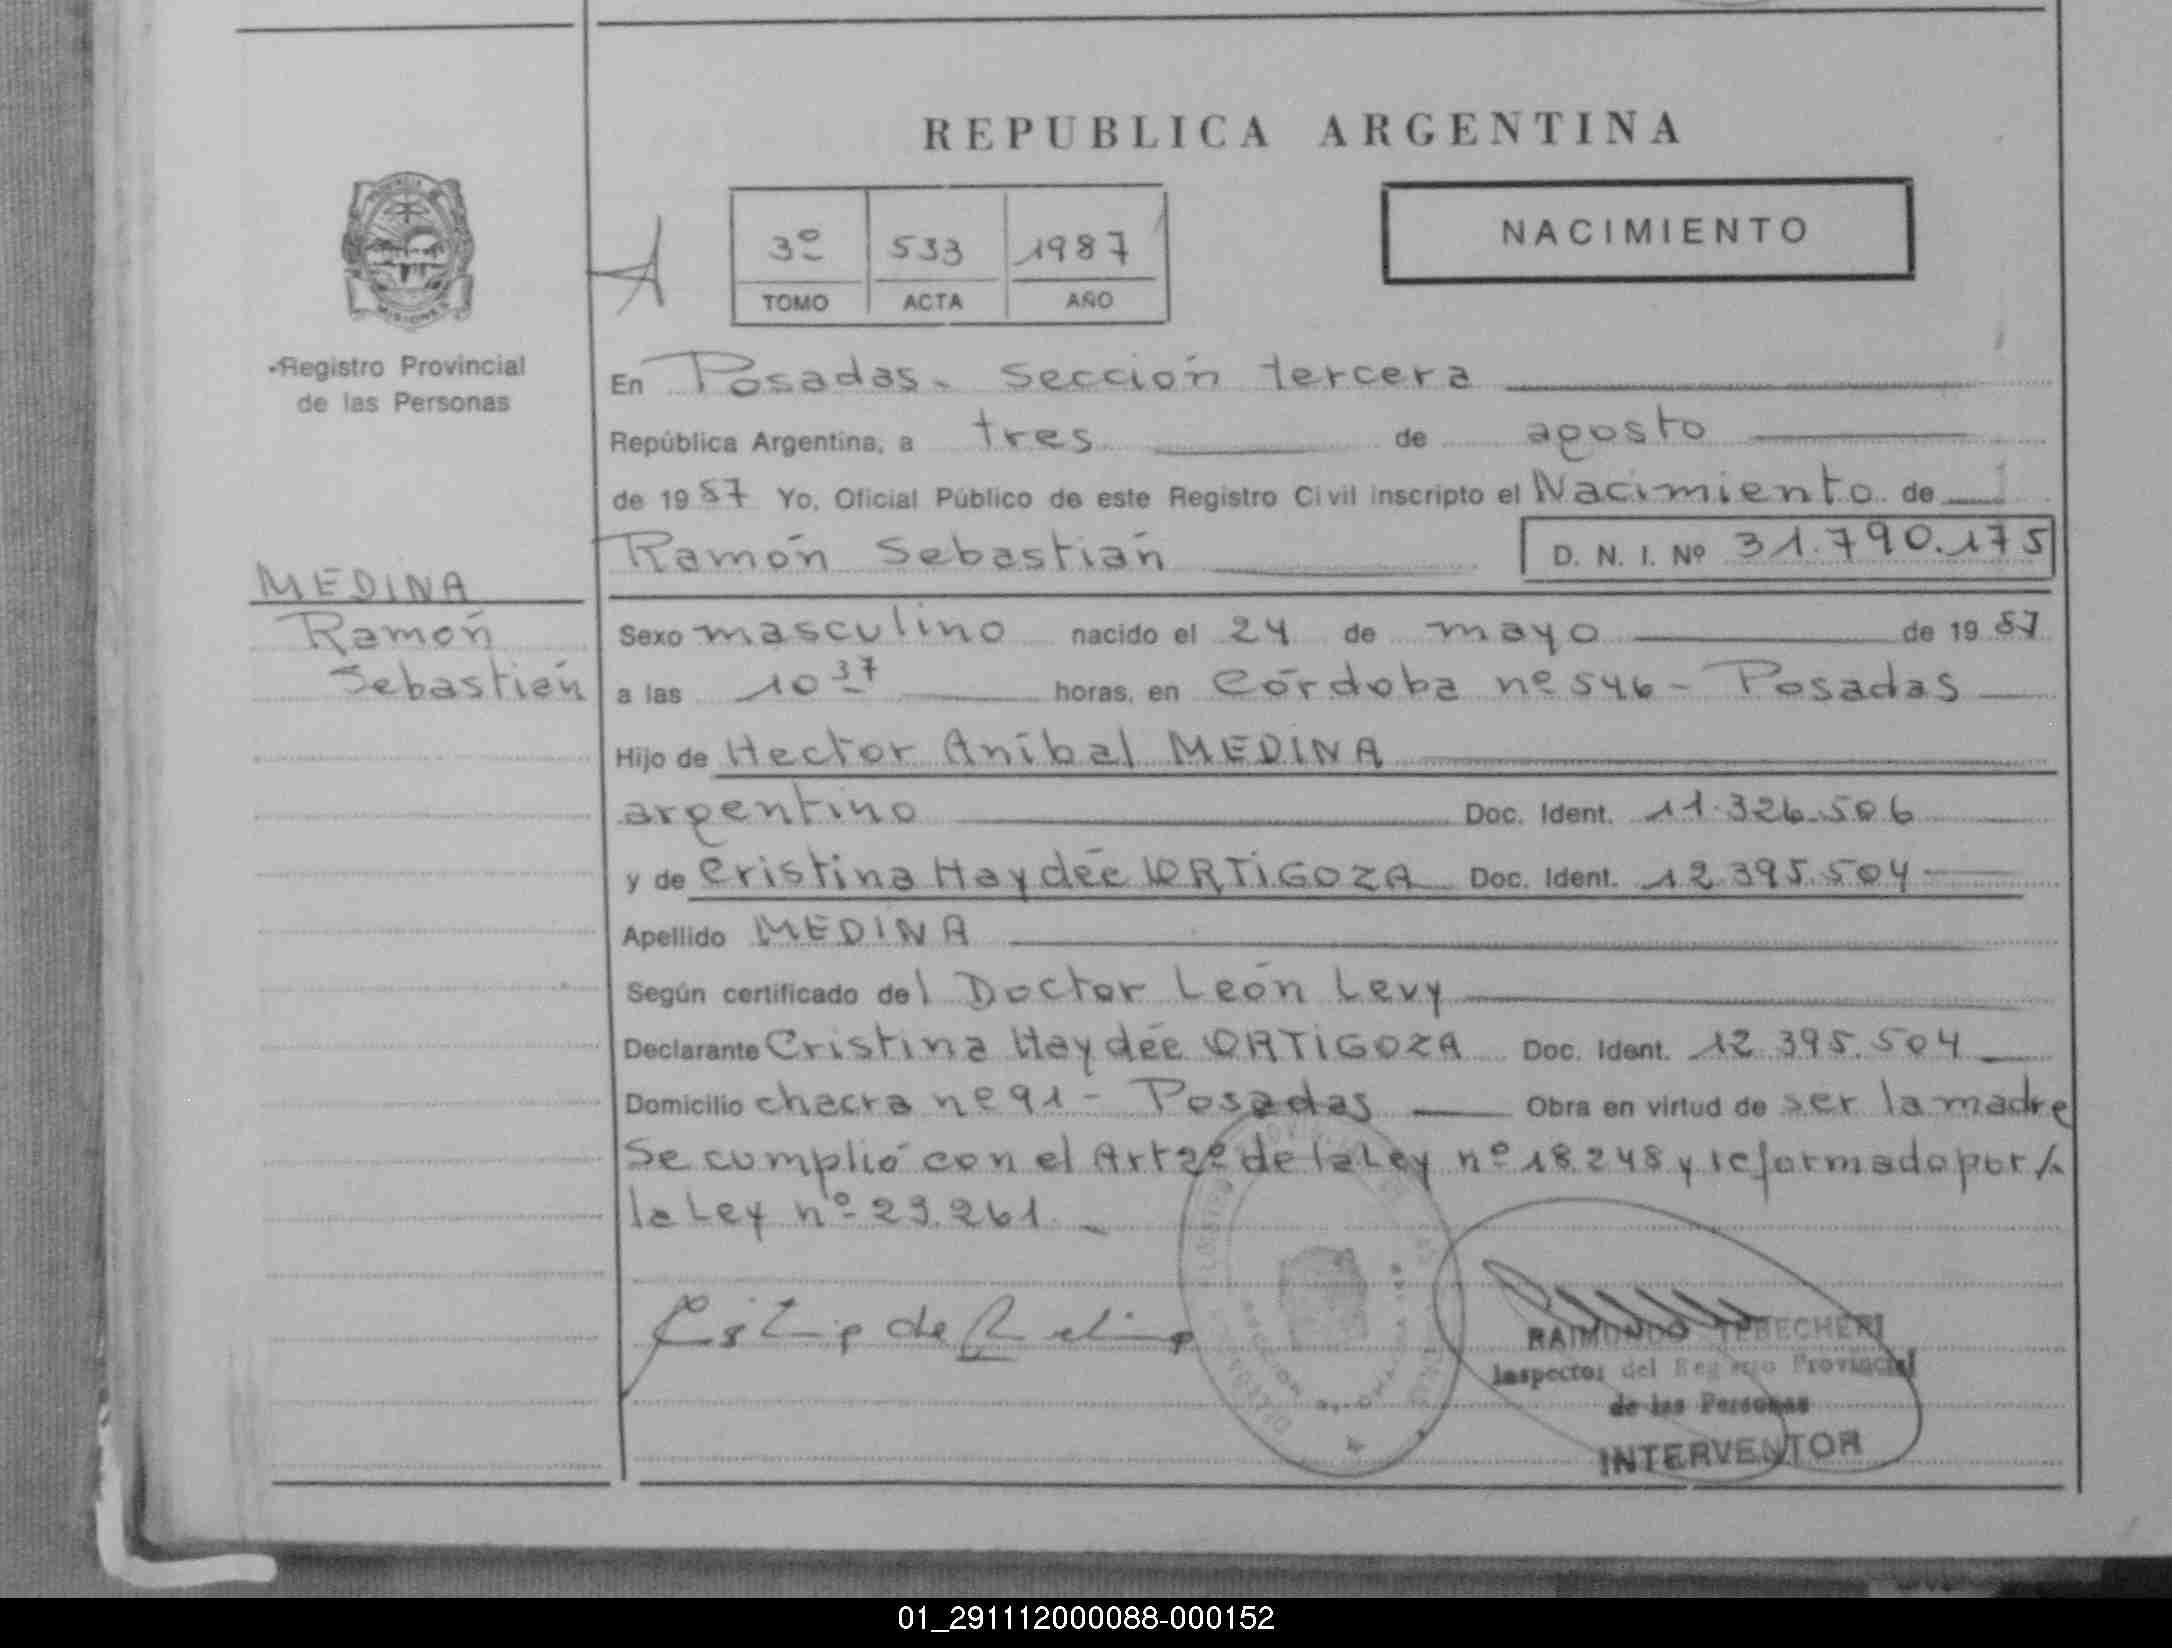 REPUBLICA ARGENTINA
3º 533 1987
TOMO ACTA AÑO
NACIMIENTO
Registro Provincial
de las Personas
MEDINA
Ramón
Sebastián
En Posadas. Sección tercera
República Argentina, a tres de agosto
de 1987 Yo, Oficial Público de este Registro Civil inscripto el Nacimiento de
Ramón Sebastián D. N. I. Nº 31.790.175
Sexo masculino nacido el 24 de mayo de 1987
a las 10 37 horas, en Córdoba nº 546 - Posadas
Hijo de Hector Aníbal MEDINA
argentino Doc. Ident. 11.326.506
y de Cristina Haydée ORTIGOZA Doc. Ident. 12.395.504
Apellido MEDINA
Según certificado del Doctor León Levy
Declarante Cristina Haydée ORTIGOZA Doc. Ident. 12.395.504
Domicilio chacra nº 91 - Posadas Obra en virtud de ser la madre
Se cumplió con el Art 2º de la Ley nº 18.248 y reformado por /.
la Ley nº 23.261. -
RAIMUNDO TEBECHERI
Inspector del Registro Provincial
de las Personas
INTERVENTOR
01_291112000088-000152